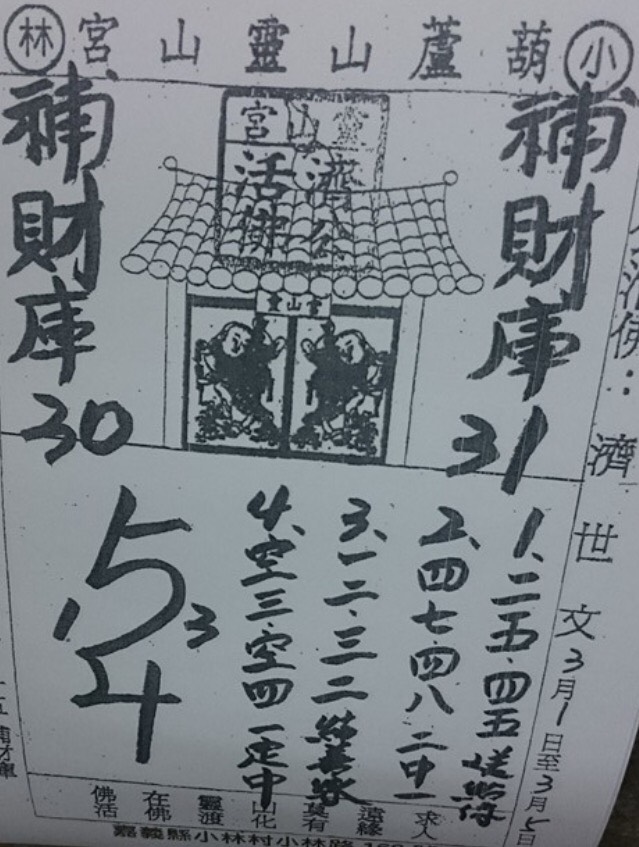 小葫蘆山靈山宮林
靈山宮
濟公
活佛
靈山宮
補財庫31
補財庫30
活佛：濟世文3月1日至3月5日
1、二五.四五
2、四七.四八二中一
3、一二.三二
4、空三.空四一定中
5
1 3
4
求人
遠緣
莫有
山化
靈渡
在佛
佛活
補財庫
嘉義縣小林村小林路